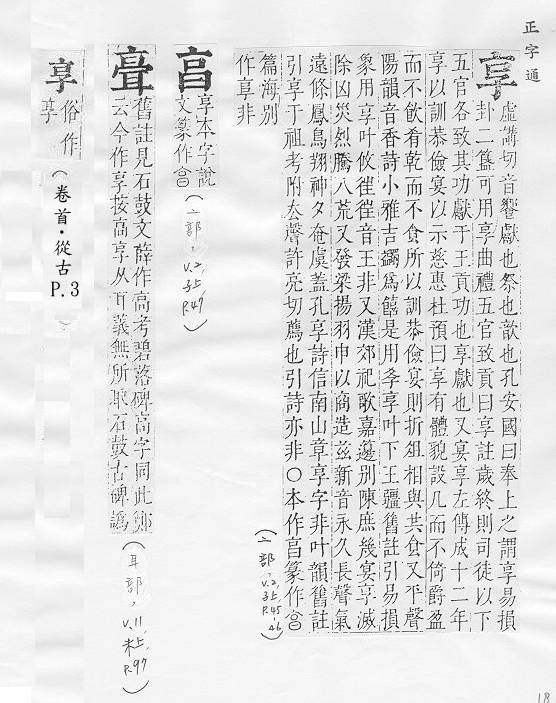 正字通
享
虛講切音響獻也祭也歆也孔安國曰奉上之謂享易損
卦二簋可用享曲禮五官致貢曰享註歲終則司徒以下
五官各致其功獻于王貢功也享獻也又宴享左傳成十二年
享以訓恭儉宴以示慈惠杜預曰享有體貌設几而不倚爵盈
而不飲肴乾而不食所以訓恭儉宴則折俎相與共食又平聲
陽韻音香詩小雅吉蠲爲饎是用孝享叶下王疆舊註引易損
象用享叶攸徃徃音王非又漢郊祀歌嘉籩別陳庶幾宴享滅
除凶災烈騰八荒又發梁揚羽申以商造兹新音永久長聲氣
遠條鳳鳥翔神夕奄虞蓋孔享詩信南山章享字非叶韻舊註
引享于祖考附去聲許亮切薦也引詩亦非○本作亯篆作亯
篇海別
作亨非
(亠部,
v.2,
子上,
P.45
46)
亯
享本字說
文篆作亯
(亠部,
v.2,
子上,
P.47)
舊註見石鼓文薛作高考碧落碑高字同此鄭
云今作享按高享从耳義無所取石鼓古碑譌
(耳部,
v.11,
未上,
P.97)
享
俗作
(卷首·從古
P.3
)
18